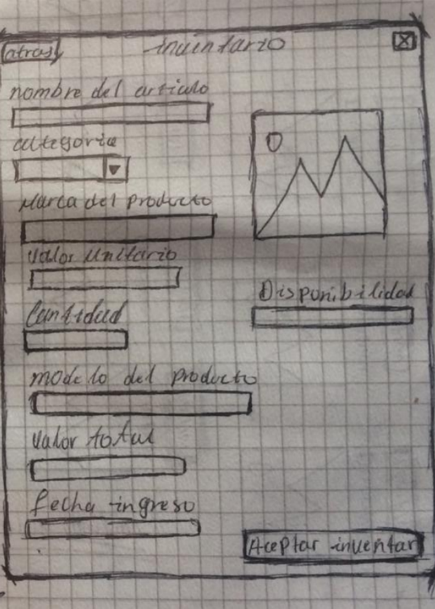 atras
inventario
X
nombre del articulo
categoria
Marca del producto
valor Unitario
Cantidad
Disponibilidad
modelo del producto
valor total
fecha ingreso
Aceptar inventar